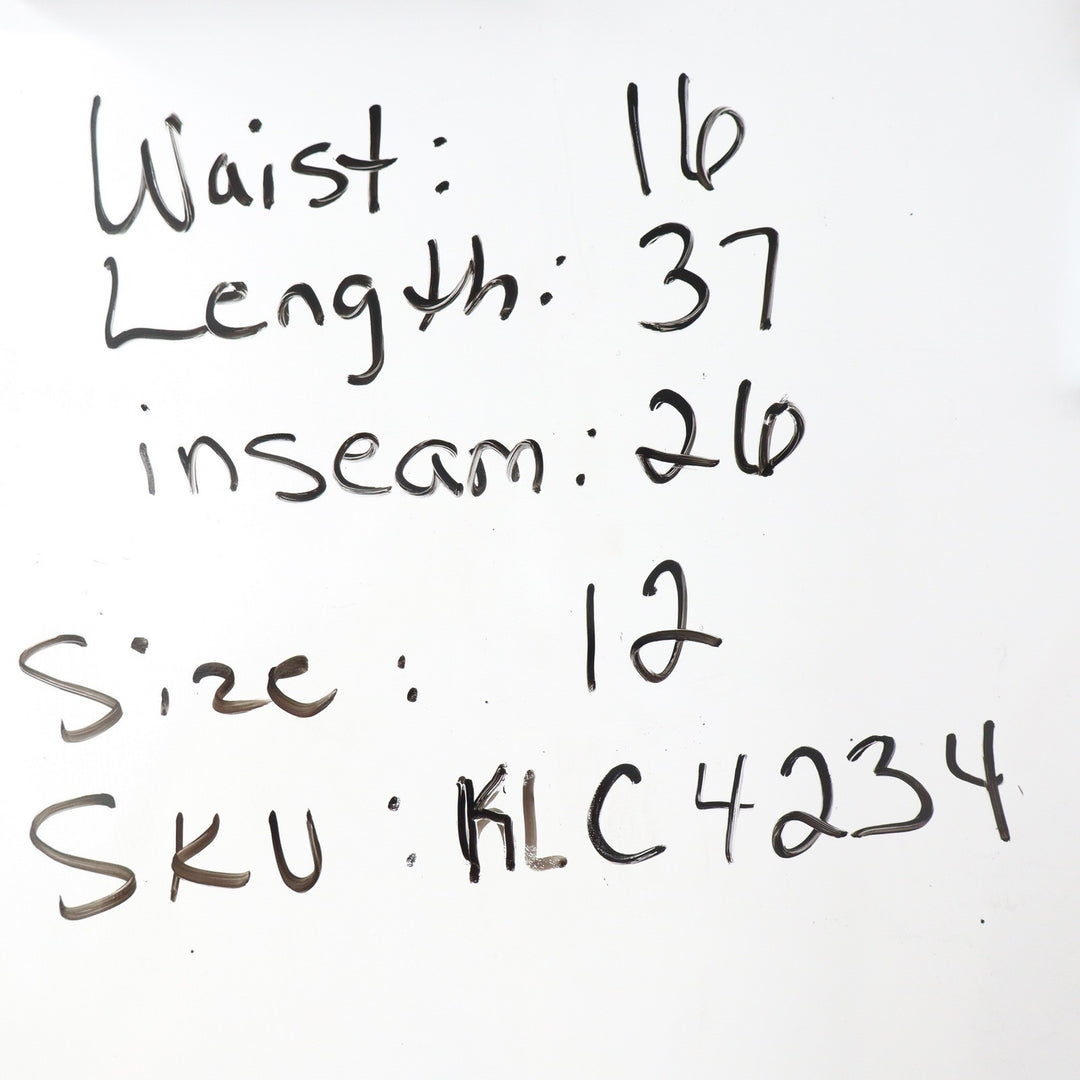 Waist: 16
Length: 37
inseam: 26
Size: 12
SKU: KLC4234